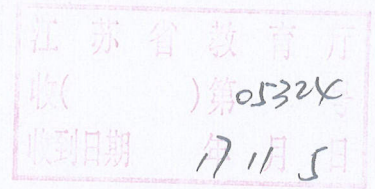 江苏省教育厅
收( )第05324号
收到日期 17年11月5日